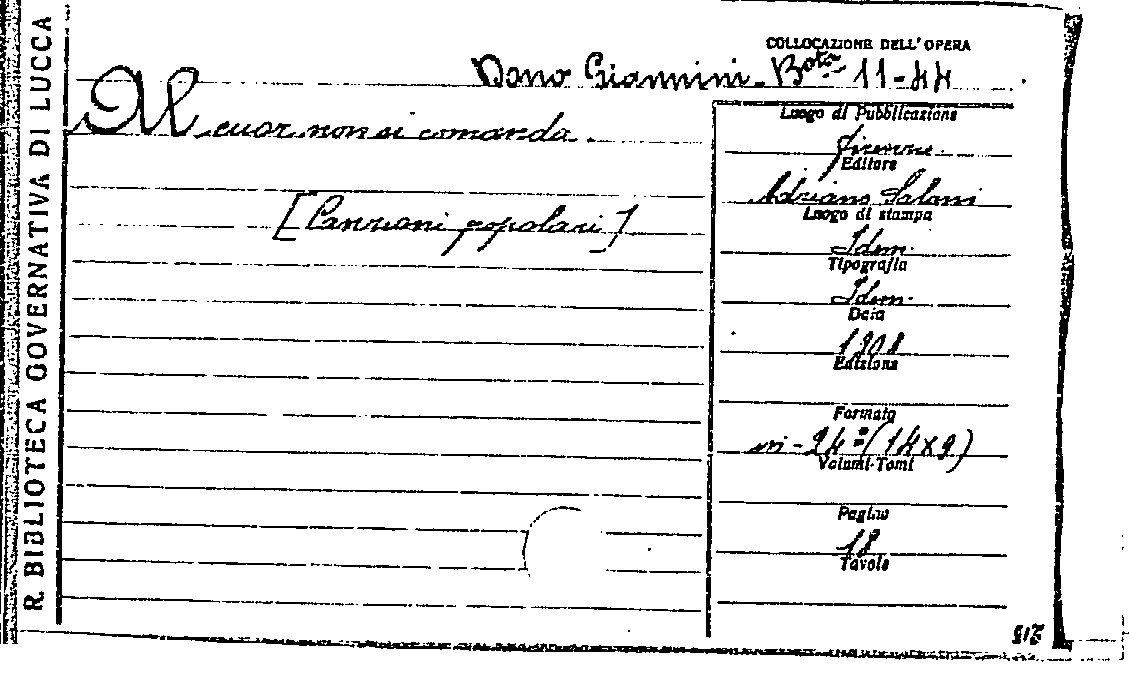 R. BIBLIOTECA GOVERNATIVA DI LUCCA
COLLOCAZIONE DELL'OPERA
Dono Giannini - Bta 11-44
Al cuor non si comanda.
[Canzoni popolari]
Luogo di Pubblicazione
Firenze.
Editore
Adriano Salani
Luogo di stampa
Idem.
Tipografia
Idem.
Data
1908
Edizione
Formato
in-24º (14x9)
Volumi-Tomi
Pagine
18
Tavole